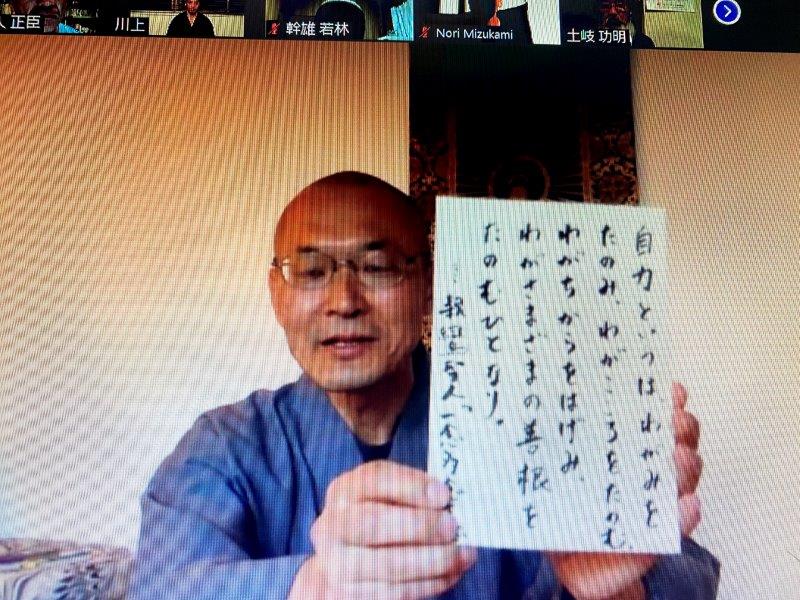 正臣
川上
幹雄 若林
Nori Mizukami
土岐 功明
自力というは、わがみを
たのみ、わがこころをたのむ、
わがちからをはげみ、
わがさまざまの善根を
たのむひとなり。
親鸞聖人